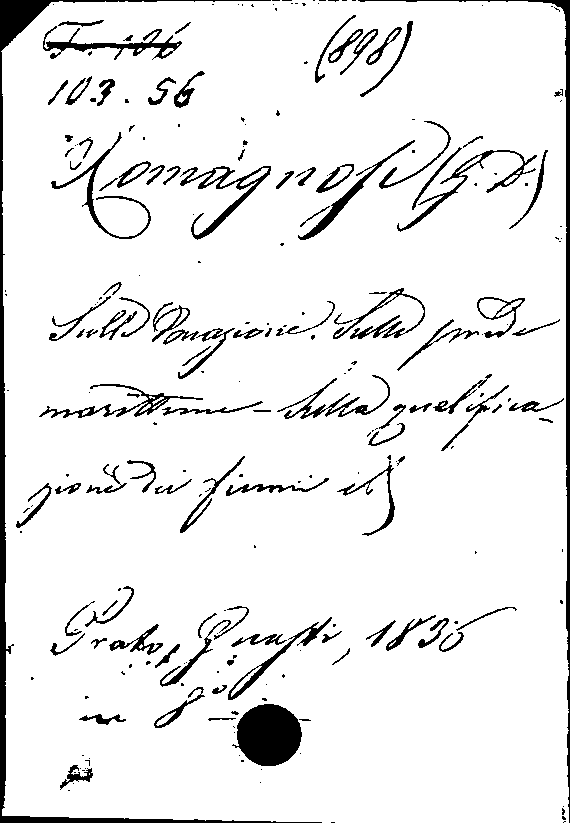 F. 106 (898)
103. 56
Romagnosi (G. D.)
Sulle Donazioni. Sulle prede
marittime - Sulla qualifica-
zione dei fiumi et
Prato, Guasti, 1836
in 8º